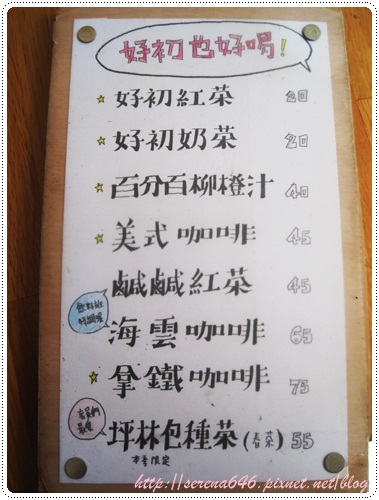 好初也好喝!
好初紅茶 20
好初奶茶 20
百分百柳橙汁 40
美式咖啡 45
鹹鹹紅茶 45
海雲咖啡 65
拿鐵咖啡 75
坪林包種茶(春茶) 55
本季限定
http://serena646.pixnet.net/blog